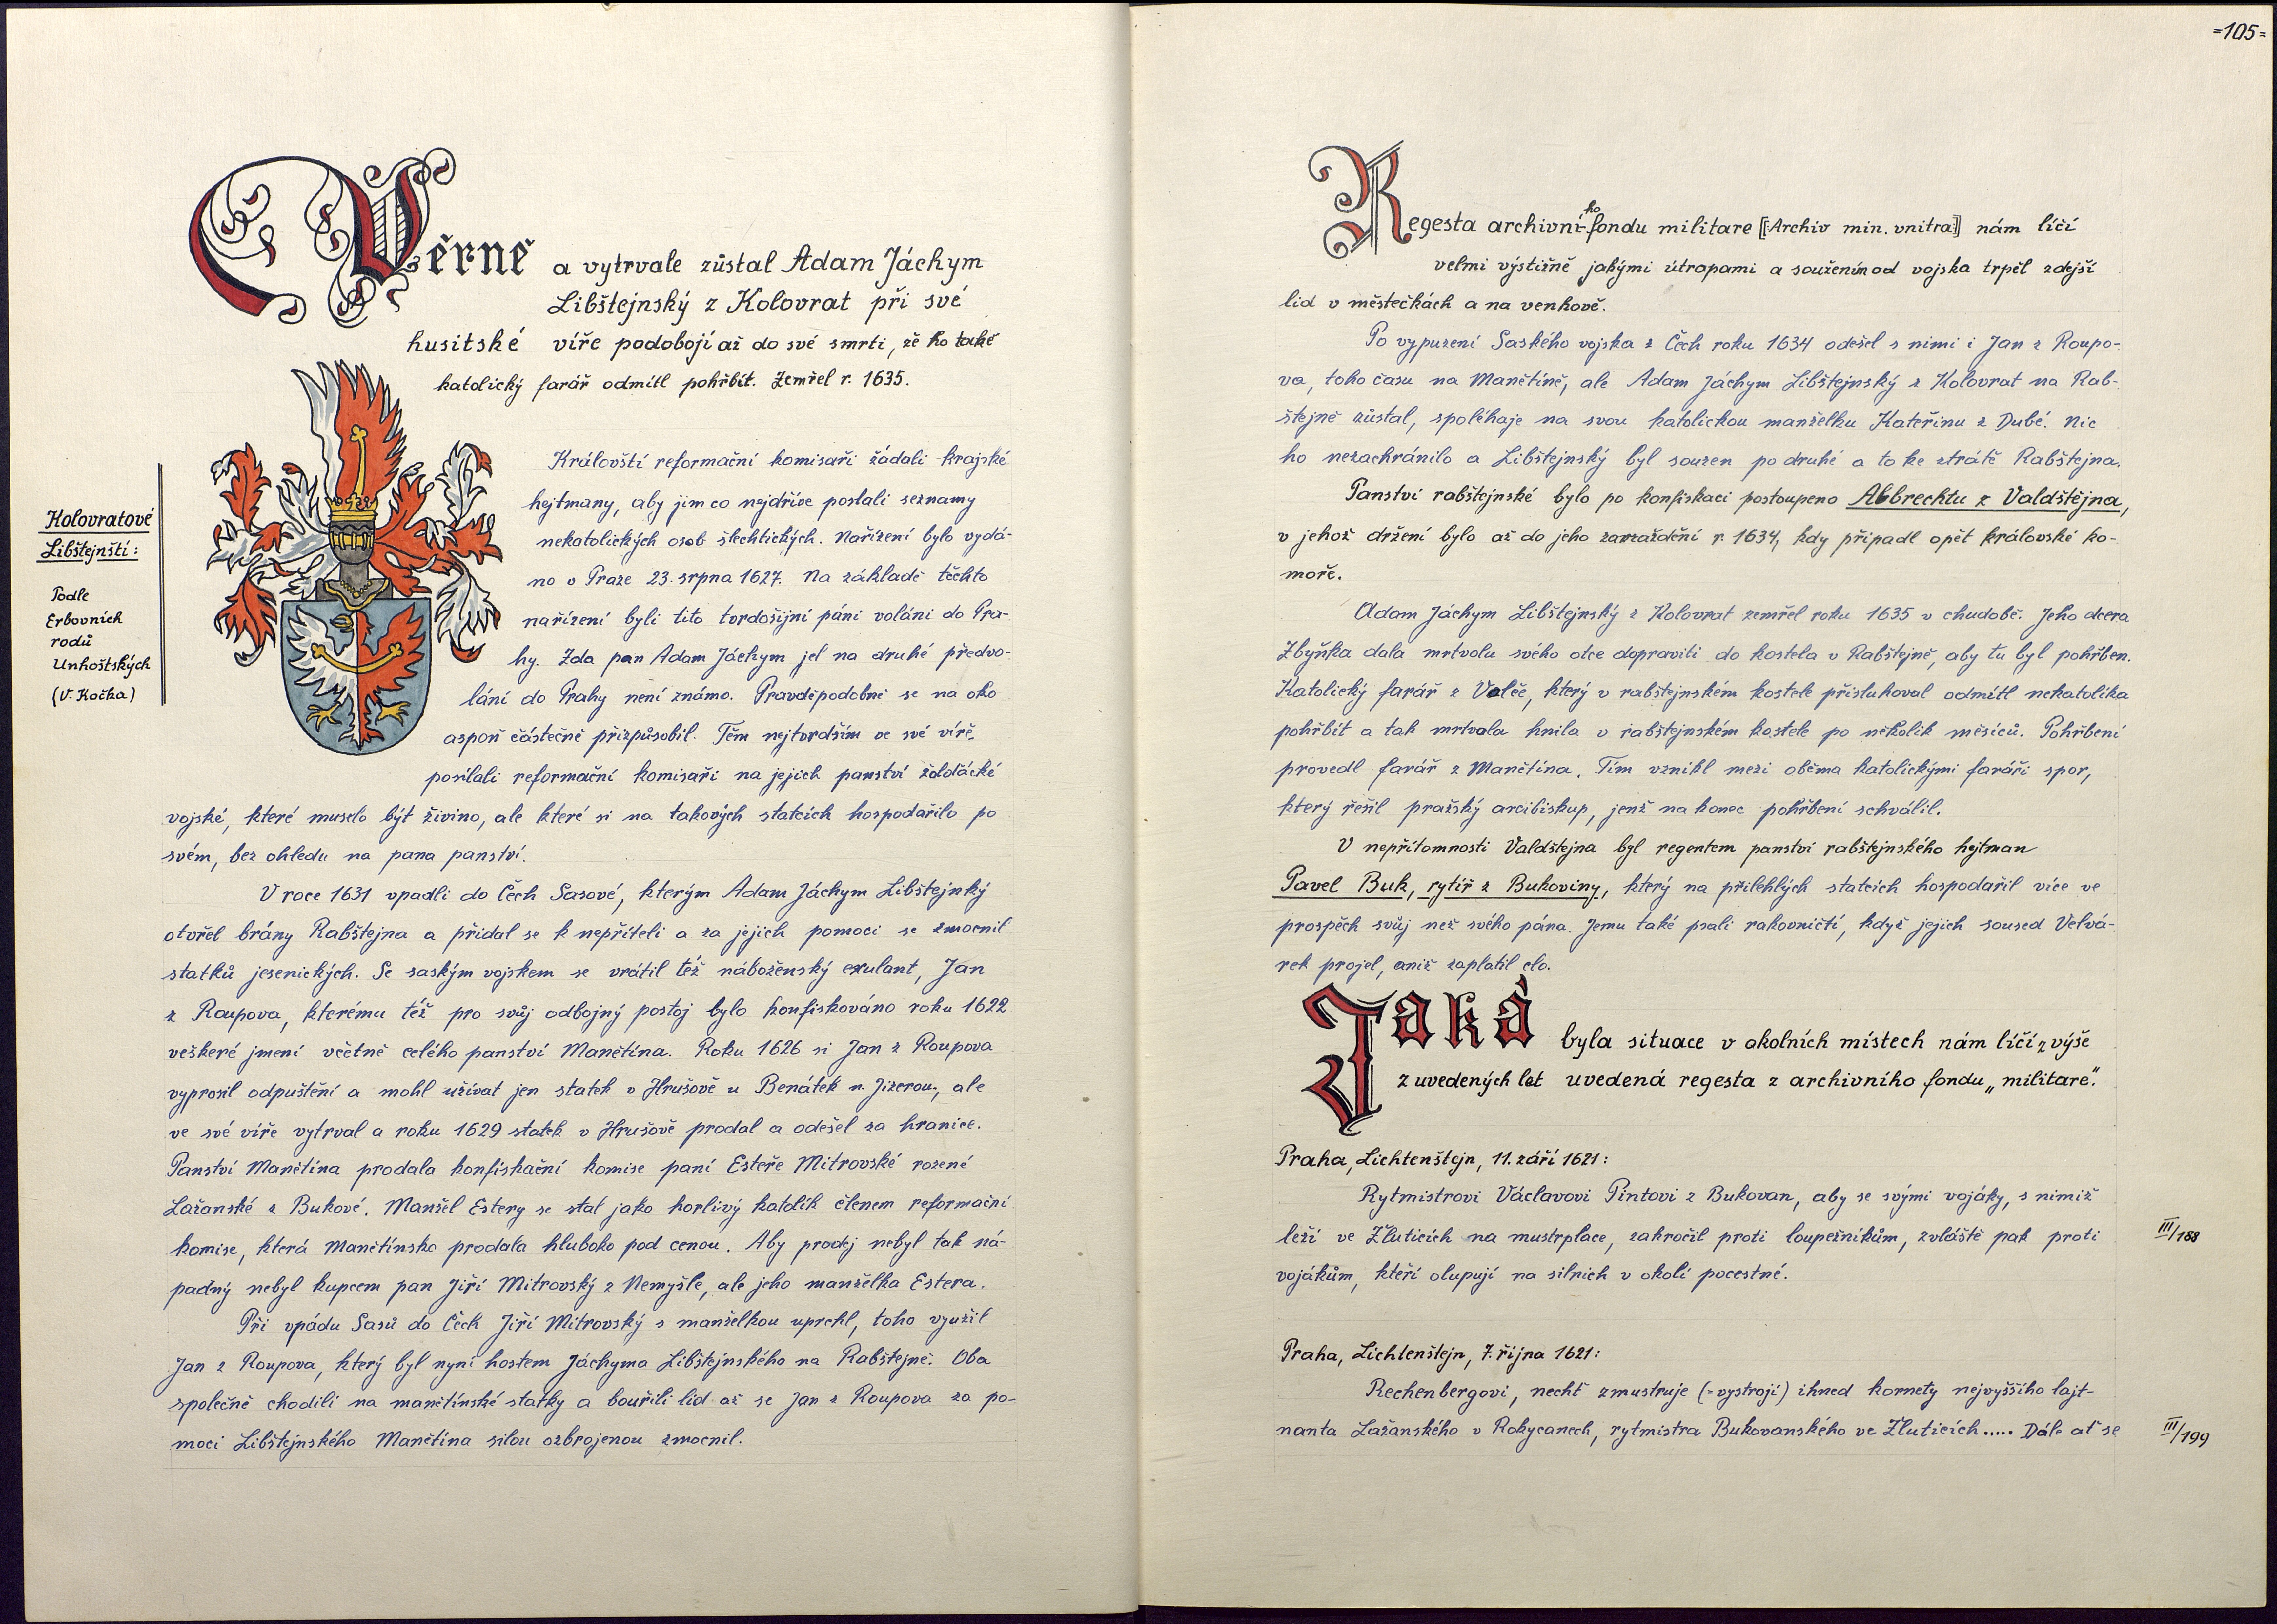 Věrně a vytrvale zůstal Adam Jáchym
Libštejnský z Kolovrat při své
husitské víře podobojí až do své smrti, že ho také
katolický farář odmítl pohřbít. Zemřel r. 1635.
Kolovratové
Libštejnští:
Podle
Erbovních
rodů
Unhoštských
(V. Kočka)
Královští reformační komisaři žádali krajské
hejtmany, aby jim co nejdříve poslali seznamy
nekatolických osob šlechtických. Nařízení bylo vydá-
no v Praze 23. srpna 1627. Na základě těchto
nařízení byli tito tvrdošijní páni voláni do Pra-
hy. Zda pan Adam Jáchym jel na druhé předvo-
lání do Prahy není známo. Pravděpodobně se na oko
aspoň částečně přizpůsobil. Těm nejtvrdším ve své víře
posílali reformační komisaři na jejich panství žoldácké
vojské, které muselo být živino, ale které si na takových statcích hospodařilo po
svém, bez ohledu na pana panství.
V roce 1631 vpadli do Čech Sasové, kterým Adam Jáchym Libštejnký
otvřel brány Rabštejna a přidal se k nepříteli a za jejich pomoci se zmocnil
statků jesenických. Se saským vojskem se vrátil též náboženský exulant, Jan
z Roupova, kterému též pro svůj odbojný postoj bylo konfiskováno roku 1622
veškeré jmení včetně celého panství Manětína. Roku 1626 si Jan z Roupova
vyprosil odpuštění a mohl užívat jen statek v Hrušově u Benátek n. Jizerou, ale
ve své víře vytrval a roku 1629 statek v Hrušově prodal a odešel za hranice.
Panství Manětína prodala konfiskační komise paní Esteře Mitrovské rozené
Lažanské z Bukové. Manžel Estery se stal jako horlivý katolík členem reformační
komise, která Manětínsko prodala hluboko pod cenou. Aby prodej nebyl tak ná-
padný nebyl kupcem pan Jiří Mitrovský z Nemyšle, ale jeho manželka Estera.
Při vpádu Sasů do Čech Jiří Mitrovský s manželkou uprchl, toho využil
Jan z Roupova, který byl nyní hostem Jáchyma Libštejnského na Rabštejně. Oba
společně chodili na manětínské statky a bouřili lid až se Jan z Roupova za po-
moci Libštejnského Manětína silou ozbrojenou zmocnil.
=105=
Regesta archivní-ho fondu militare [Archiv min. vnitra] nám líčí
velmi výstižně jakými útrapami a souženímod vojska trpěl zdejší
lid v městečkách a na venkově.
Po vypuzení Saského vojska z Čech roku 1634 odešel s nimi i Jan z Roupo-
va, toho času na Manětíně, ale Adam Jáchym Libštejnský z Kolovrat na Rab-
štejně zůstal, spoléhaje na svou katolickou manželku Kateřinu z Dubé. Nic
ho nezachránilo a Libštejnský byl souzen po druhé a to ke ztrátě Rabštejna.
Panství rabštejnské bylo po konfiskaci postoupeno Albrechtu z Valdštejna,
v jehož držení bylo až do jeho zavraždění r. 1634, kdy připadl opět královské ko-
moře.
Adam Jáchym Libštejnský z Kolovrat zemřel roku 1635 v chudobě. Jeho dcera
Zbyňka dala mrtvolu svého otce dopraviti do kostela v Rabštejně, aby tu byl pohřben.
Katolický farář z Valče, který v rabštejnském kostele přisluhoval odmítl nekatolíka
pohřbít a tak mrtvola hnila v rabštejnském kostele po několik měsíců. Pohřbení
provedl farář z Manětína. Tím vznikl mezi oběma katolickými faráři spor,
který řešil pražský arcibiskup, jenž na konec pohřbení schválil.
V nepřítomnosti Valdštejna byl regentem panství rabštejnského hejtman
Pavel Buk, rytíř z Bukoviny, který na přilehlých statcích hospodařil více ve
prospěch svůj než svého pána. Jemu také psali rakovničtí, když jejich soused Velvá-
rek projel, aniž zaplatil clo.
Jaká byla situace v okolních místech nám líčí z výše
z uvedených let uvedená regesta z archivního fondu „militare“.
Praha, Lichtenštejn, 11. září 1621:
Rytmistrovi Václavovi Pintovi z Bukovan, aby se svými vojáky, s nimiž
leží ve Žluticích na mustrplace, zakročil proti loupežníkům, zvláště pak proti
III/188
vojákům, kteří olupují na silnich v okolí pocestné.
Praha, Lichtenštejn, 7. října 1621:
Rechenbergovi, nechť zmustruje (=vystrojí) ihned kornety nejvyššího lajt-
nanta Lažanského v Rokycanech, rytmistra Bukovanského ve Žluticích..... Dále ať se
III/199